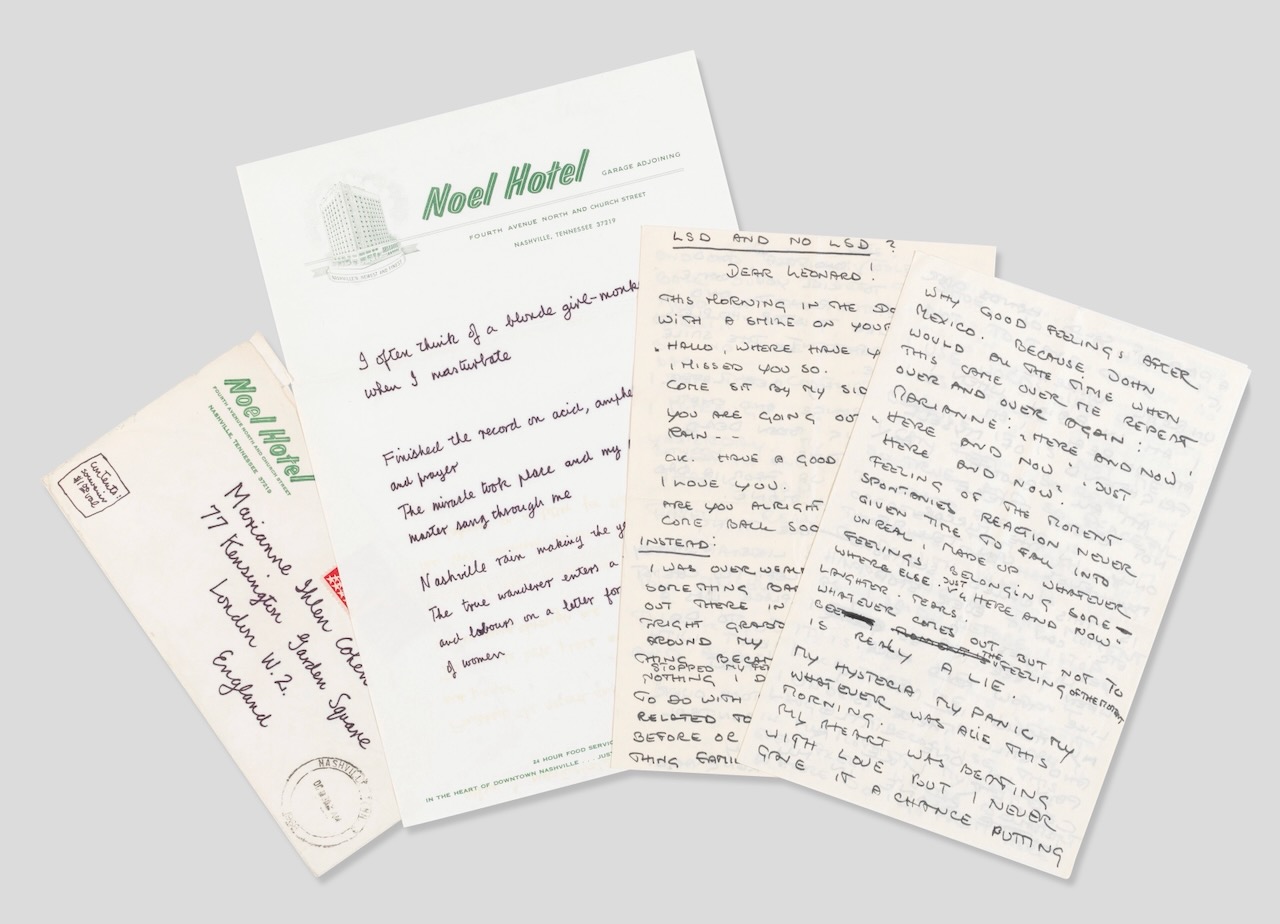 Noel Hotel
FOURTH AVENUE NORTH AND CHURCH STREET
NASHVILLE, TENNESSEE 37219
Contents:
souvenir
Marianne Ihlen Cohen
77 Kensington Garden Square
London W.2.
England
NASHVILLE
Noel Hotel
GARAGE ADJOINING
FOURTH AVENUE NORTH AND CHURCH STREET
NASHVILLE, TENNESSEE 37219
I often think of a blonde girl-monk
when I masturbate
Finished the record on acid, amphe
and prayer
The miracle took place and my
master sang through me
Nashville rain making the
The true wanderer enters a
and labours on a letter for
of women
24 HOUR FOOD SERVIC
IN THE HEART OF DOWNTOWN NASHVILLE . . . JUS
LSD AND NO LSD ?
DEAR LEONARD!
THIS MORNING IN THE DO
WITH A SMILE ON YOUR
HALLO, WHERE HAVE Y
I MISSED YOU SO.
COME SIT BY MY SID
YOU ARE GOING OUT
RAIN - -
OK. HAVE A GOOD
I LOVE YOU.
ARE YOU ALRIGHT
COME BACK SOO
INSTEAD:
I WAS OVER WEAL
SOMETHING BA
OUT THERE IN
FRIGHT GRABB
AROUND MY
THING BECAM
STOPPED MY
NOTHING I D
TO DO WITH
RELATED TO
BEFORE OR
THING FAMIL
WHY GOOD FEELINGS AFTER
MEXICO. BECAUSE JOHN
WOULD ALL THE TIME WHEN
THIS CAME OVER ME REPEAT
OVER AND OVER AGAIN!
MARIANNE! "HERE AND NOW!
"HERE AND NOW" JUST
HERE AND NOW"
FEELING OF THE MOMENT
SPONTONIES REACTION NEVER
GIVEN TIME TO FALL INTO
UNREAL, MADE UP WHATEVER
FEELINGS BELONGING SOME-
WHERE ELSE. JUST HERE AND NOW.
LAUGHTER. TEARS!
WHATEVER COMES OUT BUT NOT TO
THE FEELING OF THE MOMENT
IS REALLY A LIE.
MY HYSTERIA MY PANIC MY
WHATEVER WAS A LIE THIS
MORNING.
MY HEART WAS BEATING
WITH LOVE BUT I NEVER
GAVE IT A CHANCE PUTTING